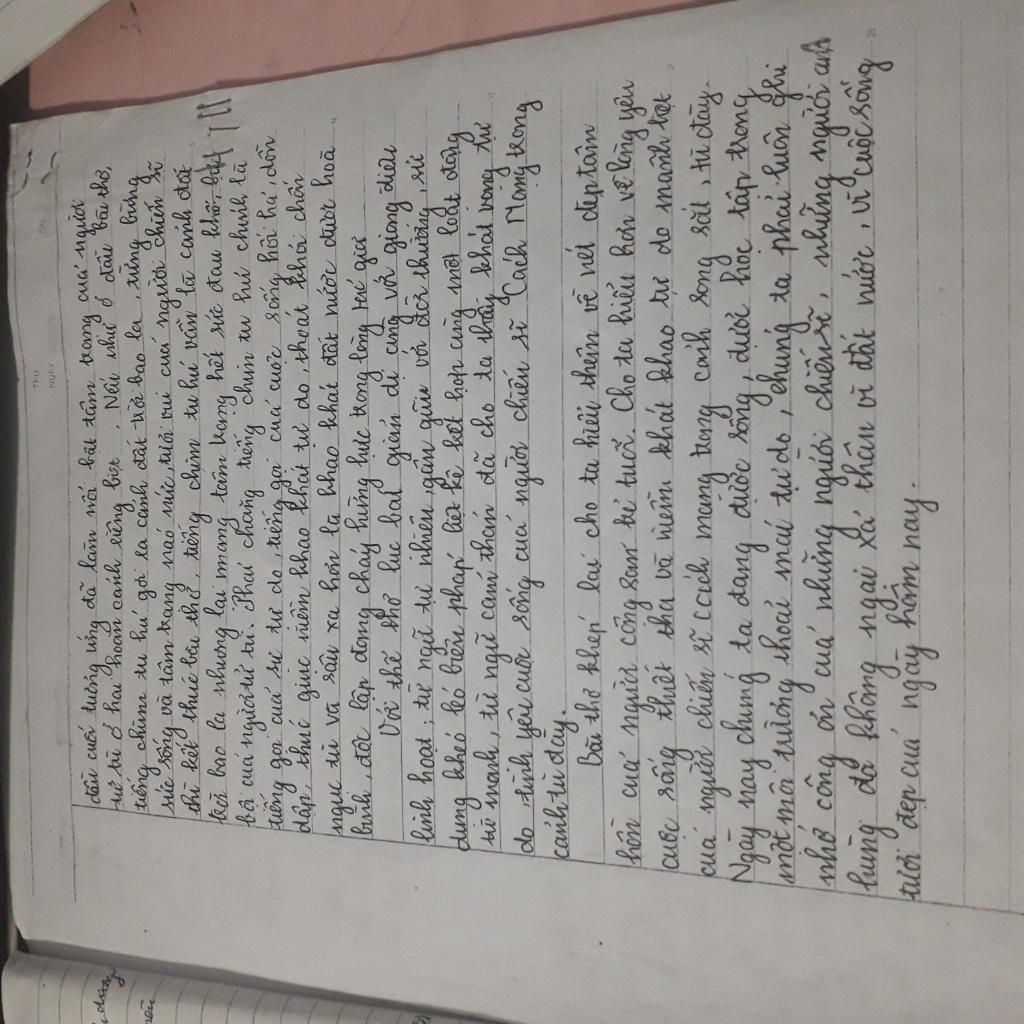 THU
NGÀY
đầu cuối tương ứng đã làm nổi bật tâm trạng của người
tử tù ở hai hoàn cảnh riêng biệt. Nếu như ở đầu bài thơ,
tiếng chim tu hú gợi ra cảnh đất trời bao la, tưng bừng
sức sống và tâm trạng náo nức, tươi vui của người chiến sĩ
thì kết thúc bài thơ, tiếng chim tu hú vẫn là cảnh đất
trời bao la nhưng lại mang tâm trạng hết sức đau khổ,
bởi của người tử tù. Phải chăng tiếng chim tu hú chính là
tiếng gọi của sự tự do, tiếng gọi của cuộc sống hối hả, dồn
dập, thúc giục niềm khao khát tự do, thoát khỏi chốn
ngục tù và sâu xa hơn là khao khát đất nước được hoà
bình, độc lập đong cháy hừng hực trong lòng tác giả
Với thể thơ lục bát giản dị cùng với giọng điệu
linh hoạt; từ ngữ tự nhiên, gần gũi với đời thường, sử
dụng khéo léo biện pháp liệt kê kết hợp cùng một loạt động
từ mạnh, từ ngữ cảm thán đã cho ta thấy khát vọng tự
do, tình yêu cuộc sống của người chiến sĩ Cách Mạng trong
cảnh tù đày.
Bài thơ khép lại cho ta hiểu thêm về nét đẹp tâm
hồn của người cộng sản trẻ tuổi. Cho ta hiểu hơn về lòng yêu
cuộc sống thiết tha và niềm khát khao tự do mãnh liệt
của người chiến sĩ cách mạng trong cảnh song sắt, tù đày.
Ngày nay chúng ta đang được sống, được học tập trong
một môi trường thoải mái tự do, chúng ta phải luôn ghi
nhớ công ơn của những người chiến sĩ, những người anh
hùng đã không ngại xả thân vì đất nước, vì cuộc sống
tươi đẹp của ngày hôm nay.